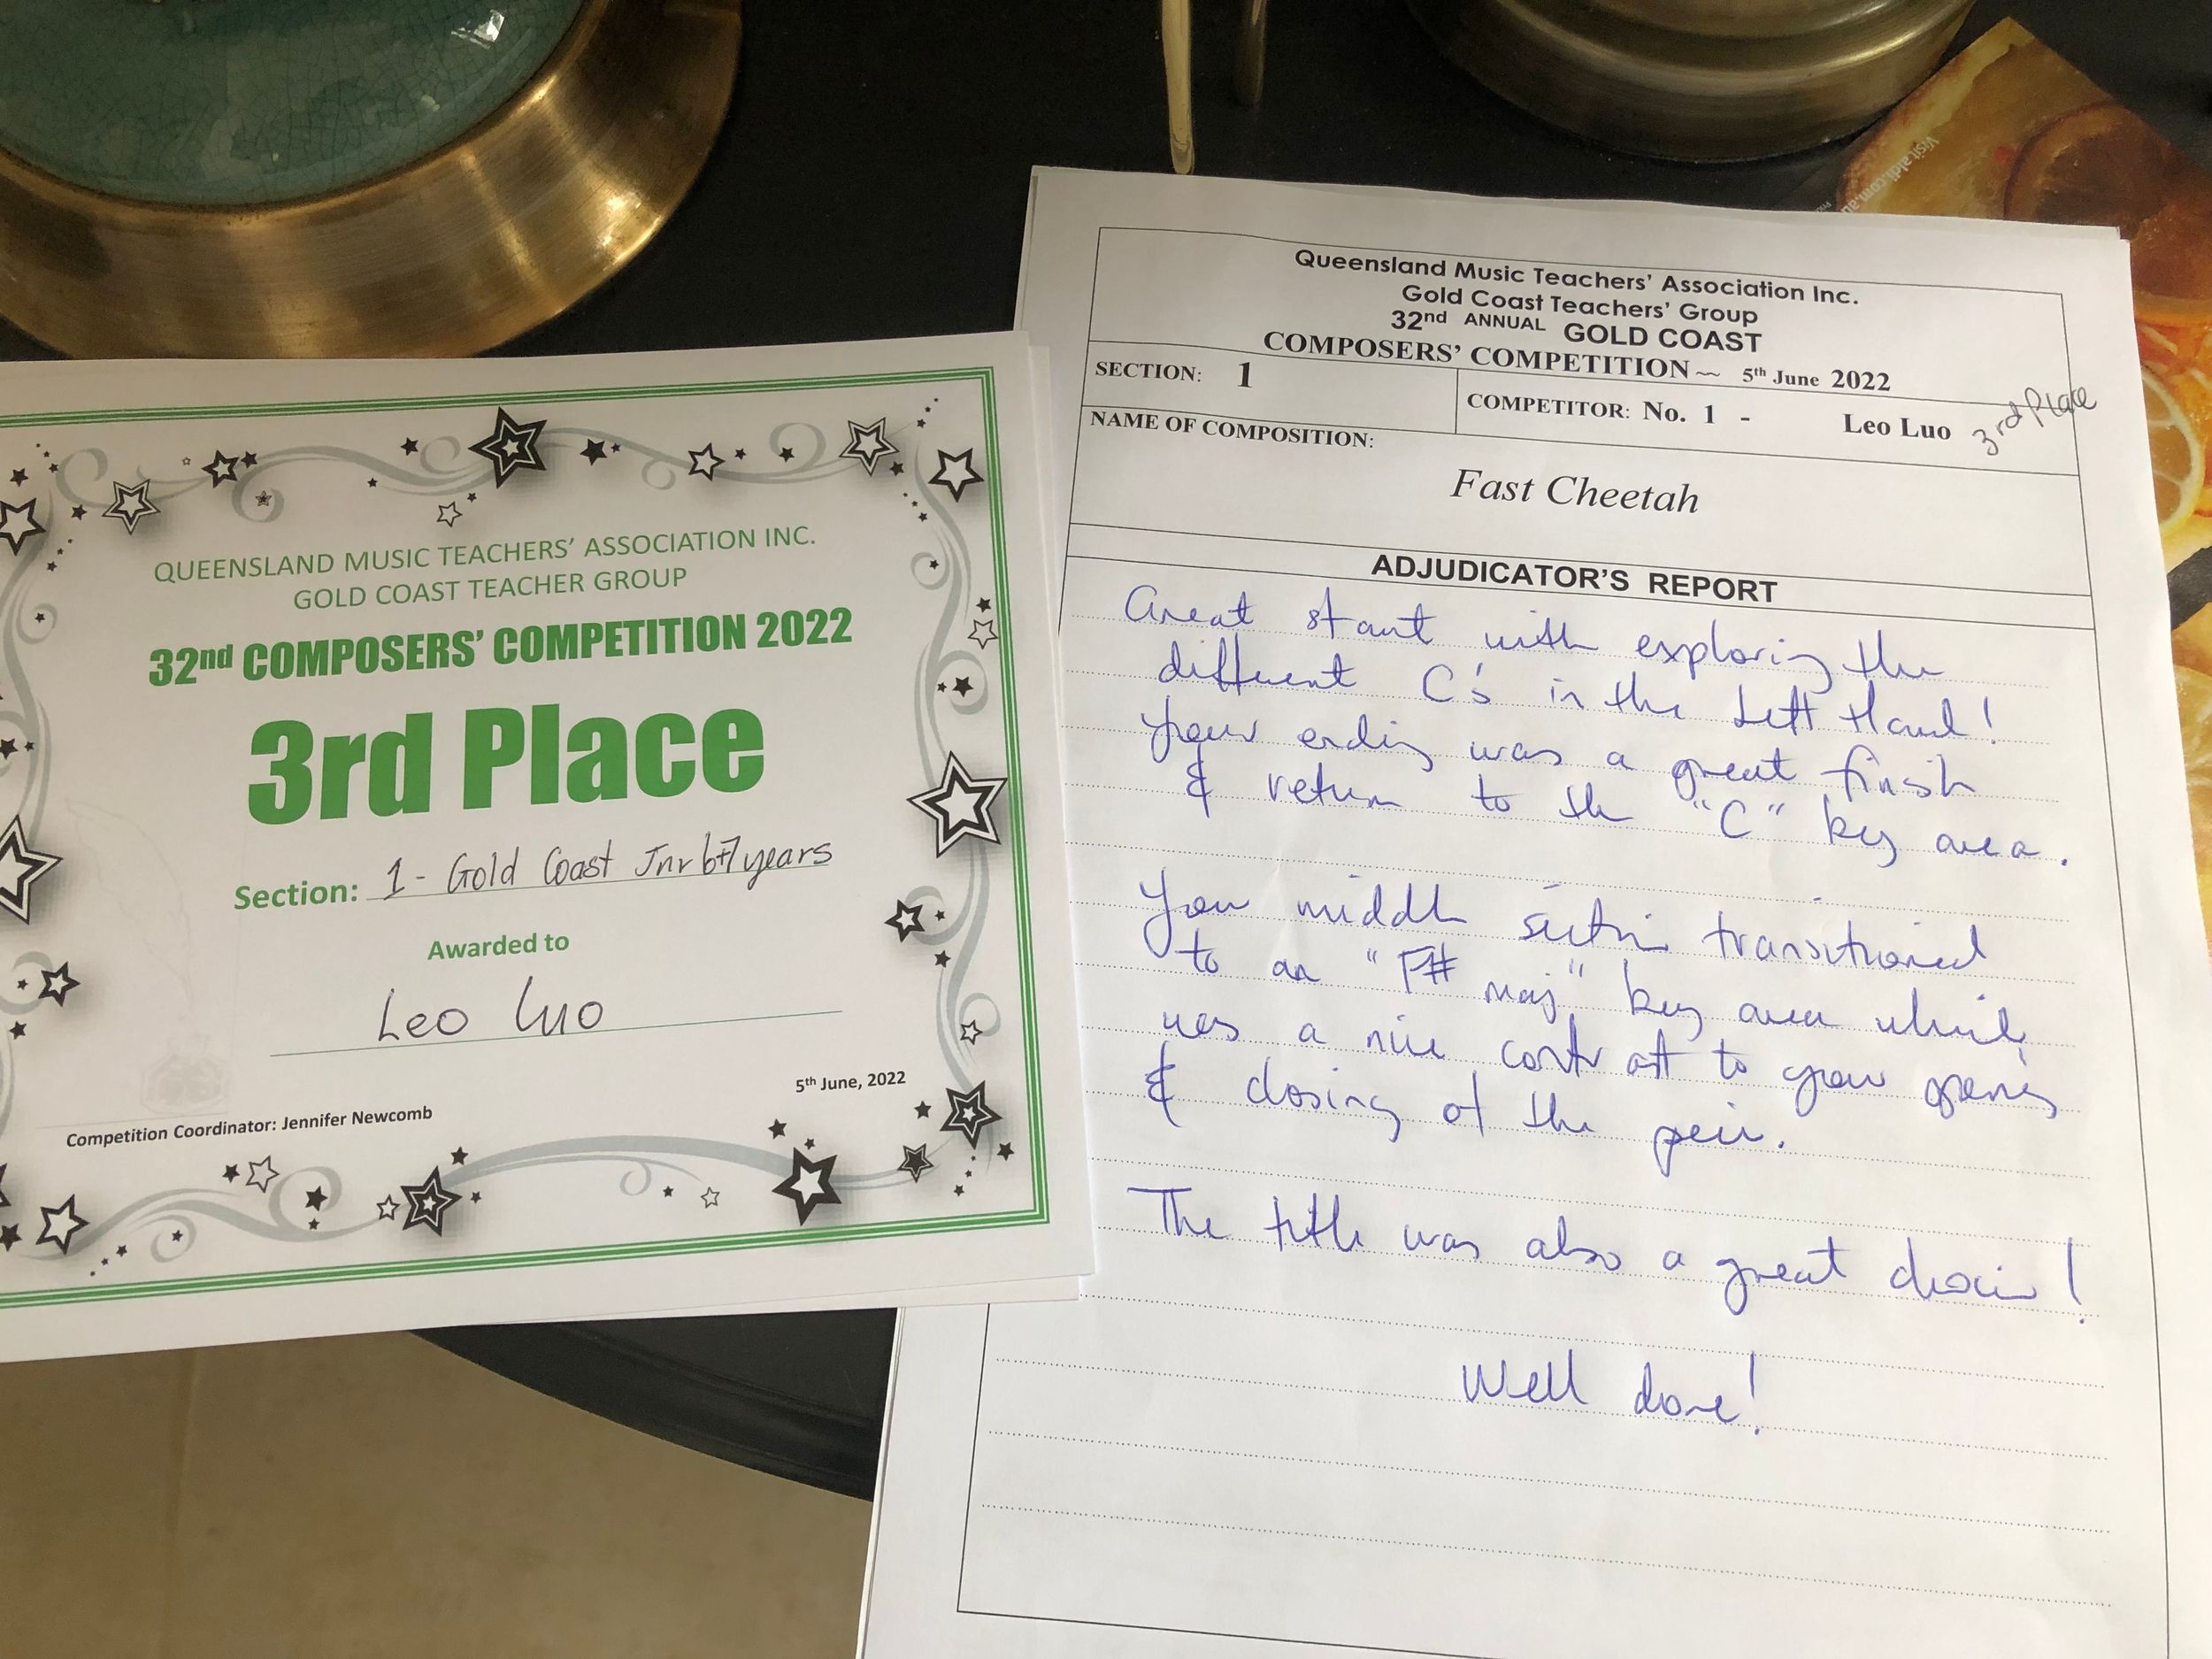 QUEENSLAND MUSIC TEACHERS' ASSOCIATION INC.
GOLD COAST TEACHER GROUP
32nd COMPOSERS' COMPETITION 2022
3rd Place
Section: 1 - Gold Coast Jnr 6+7 years
Awarded to
Leo Luo
5th June, 2022
Competition Coordinator: Jennifer Newcomb
Queensland Music Teachers' Association Inc.
Gold Coast Teachers' Group
32nd ANNUAL GOLD COAST
COMPOSERS' COMPETITION ~ 5th June 2022
SECTION: 1
COMPETITOR: No. 1 - Leo Luo 3rd Place
NAME OF COMPOSITION:
Fast Cheetah
ADJUDICATOR'S REPORT
Great start with exploring the
different C's in the Left Hand!
Your ending was a great finish
& return to the "C" key area.
Your middle section transitioned
to an "F# maj" key area which
was a nice contrast to your opening
& closing of the piece.
The title was also a great choice!
Well done!
Visit aldi.com.au